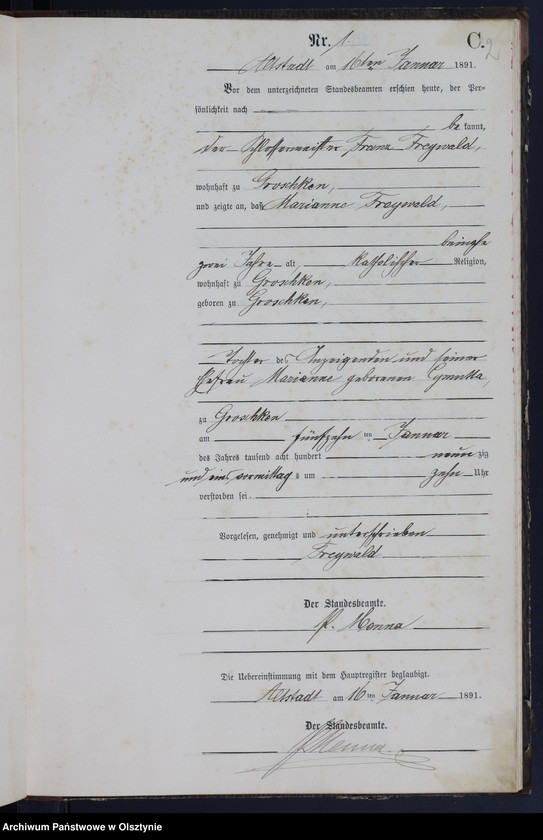 Nr. 1
C.
2
Altstadt am 16ten Januar 1891.
Vor dem unterzeichneten Standesbeamten erschien heute, der Per=
sönlichkeit nach
be kannt,
der Schlossermeister Franz Freywald,
wohnhaft zu Groschken,
und zeigte an, daß Marianne Freywald,
beinahe
zwei Jahre alt, katholischer Religion,
wohnhaft zu Groschken,
geboren zu Groschken,
Tochter des Anzeigenden und seiner
Ehefrau Marianne geborenen
zu Groschken
am fünfzehn ten Januar
des Jahres tausend acht hundert neun zig
und eins vormittag s um zehn Uhr
verstorben sei.
Vorgelesen, genehmigt und unterschrieben
Freywald
Der Standesbeamte.
Monna
Die Uebereinstimmung mit dem Hauptregister beglaubigt.
Altstadt am 16ten Januar 1891.
Der Standesbeamte.
Monna
Archiwum Państwowe w Olsztynie